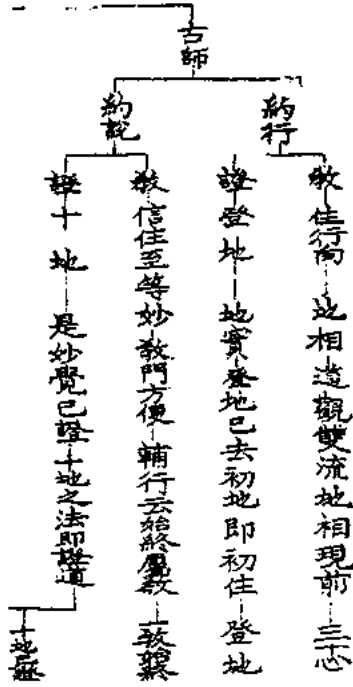 古師
約行
教 住行向 地相 道觀雙流地相現前 三十心
證 登地 地實 登地已去初地即初住 登地
約說
教 信住至等妙 教門方便 輔行云始終屬教
證 十地 是妙覺已證十地之法即證道
十地